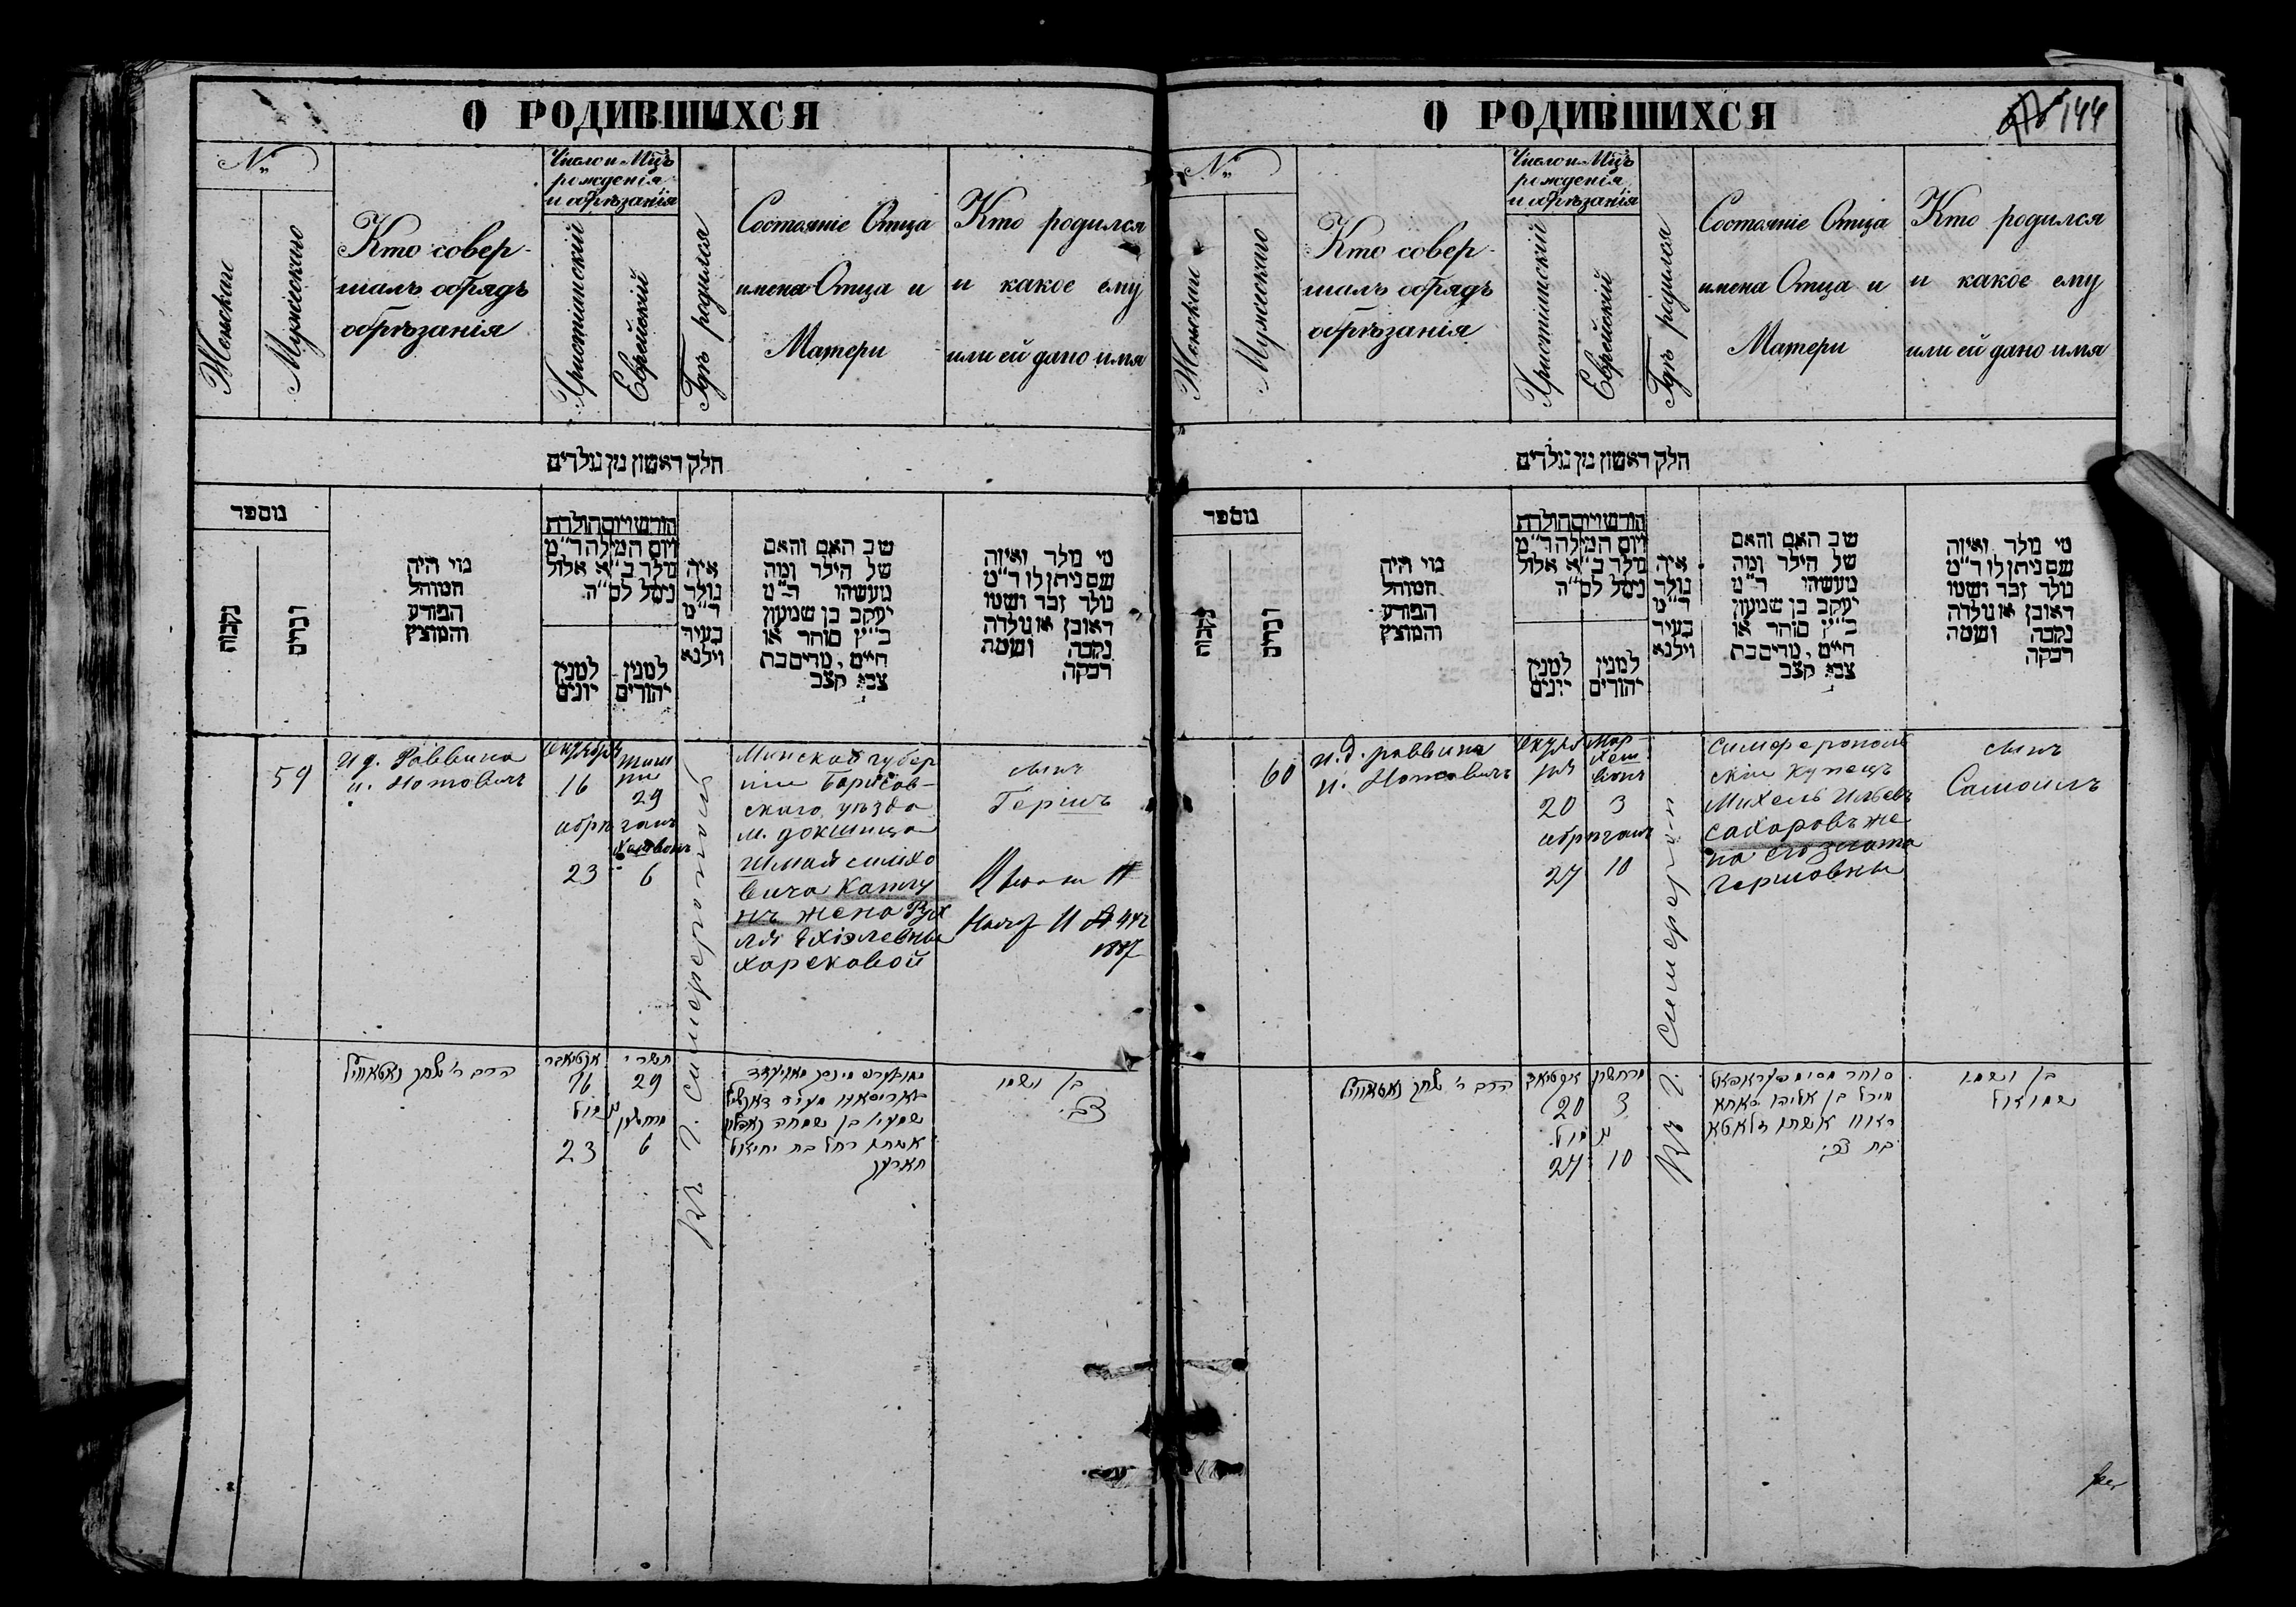 О РОДИВШИХСЯ
№
Женскаго
Мужескаго
Кто совер-
шалъ обрядъ
обрѣзанія
Число и Мц̃ъ
рожденія
и обрѣзанія
Христіанскій
Еврейскій
Гдѣ родился
Состояніе Отца
имена Отца и
Матери
Кто родился
и какое ему
или ей дано имя
חלק ראשון מן נולדים
מספר
נקבות
זכרים
מי היה
המוהל
הפורע
והמוצץ
חודש ויום הולדת
ויום המילה ד״מ
נולד ב״א אלול
נימל לס״ה
למנין
יונים
למנין
יהודים
איה
נולד
ד״מ
בעיר
וילנא
שב האם והאם
של הילד ומה
מעשהו ד״מ
יעקב בן שמעון
כ״ץ סוחר או
חייט, מרים בת
צבי קצב
מי נולד ואיזה
שם ניתן לו ד״מ
נולד זכר ושמו
ראובן או נולדה
נקבה ושמה
רבקה
59
и д. Раввина
и. Нотовичъ
Октября
16
обрѣзанъ
23
Тиш
ри
29
Хешвонъ
6
Въ г. Симферополѣ
Минской губер
ніи Борисов-
скаго уѣзда
м. Докшица
вича
жена Рух
ля Ехіэлевны
сынъ
Гершъ
1887
אקטאבר
16
23
תשרי
29
נימול
מרחשון
6
אשתו רחל בת יחיאל
בן ושמו
צבי
О РОДИВШИХСЯ
144
№
Женскаго
Мужескаго
Кто совер-
шалъ обрядъ
обрѣзанія
Число и Мц̃ъ
рожденія
и обрѣзанія
Христіанскій
Еврейскій
Гдѣ родился
Состояніе Отца
имена Отца и
Матери
Кто родился
и какое ему
или ей дано имя
חלק ראשון מן נולדים
מספר
נקבות
זכרים
מי היה
המוהל
הפורע
והמוצץ
חודש ויום הולדת
ויום המילה ד״מ
נולד ב״א אלול
נימל לס״ה
למנין
יונים
למנין
יהודים
איה
נולד
ד״מ
בעיר
וילנא
שב האם והאם
של הילד ומה
מעשהו ד״מ
יעקב בן שמעון
כ״ץ סוחר או
חייט, מרים בת
צבי קצב
מי נולד ואיזה
שם ניתן לו ד״מ
נולד זכר ושמו
ראובן או נולדה
נקבה ושמה
רבקה
60
и. д. раввина
и. Нотовичъ
Октяб
ря
20
обрѣзанъ
27
Мар-
Хеш
вонъ
3
10
Въ г. Симферопол
Симферополь
скій купецъ
Михель Ильевъ
Сахаровъ же
на его Злата
Гершовны
сынъ
Самоилъ
20
27
מרחשון
3
נימול
10
מיכל בן אליהו
אשתו זלאטא
בת צבי
בן ושמו
שמואל